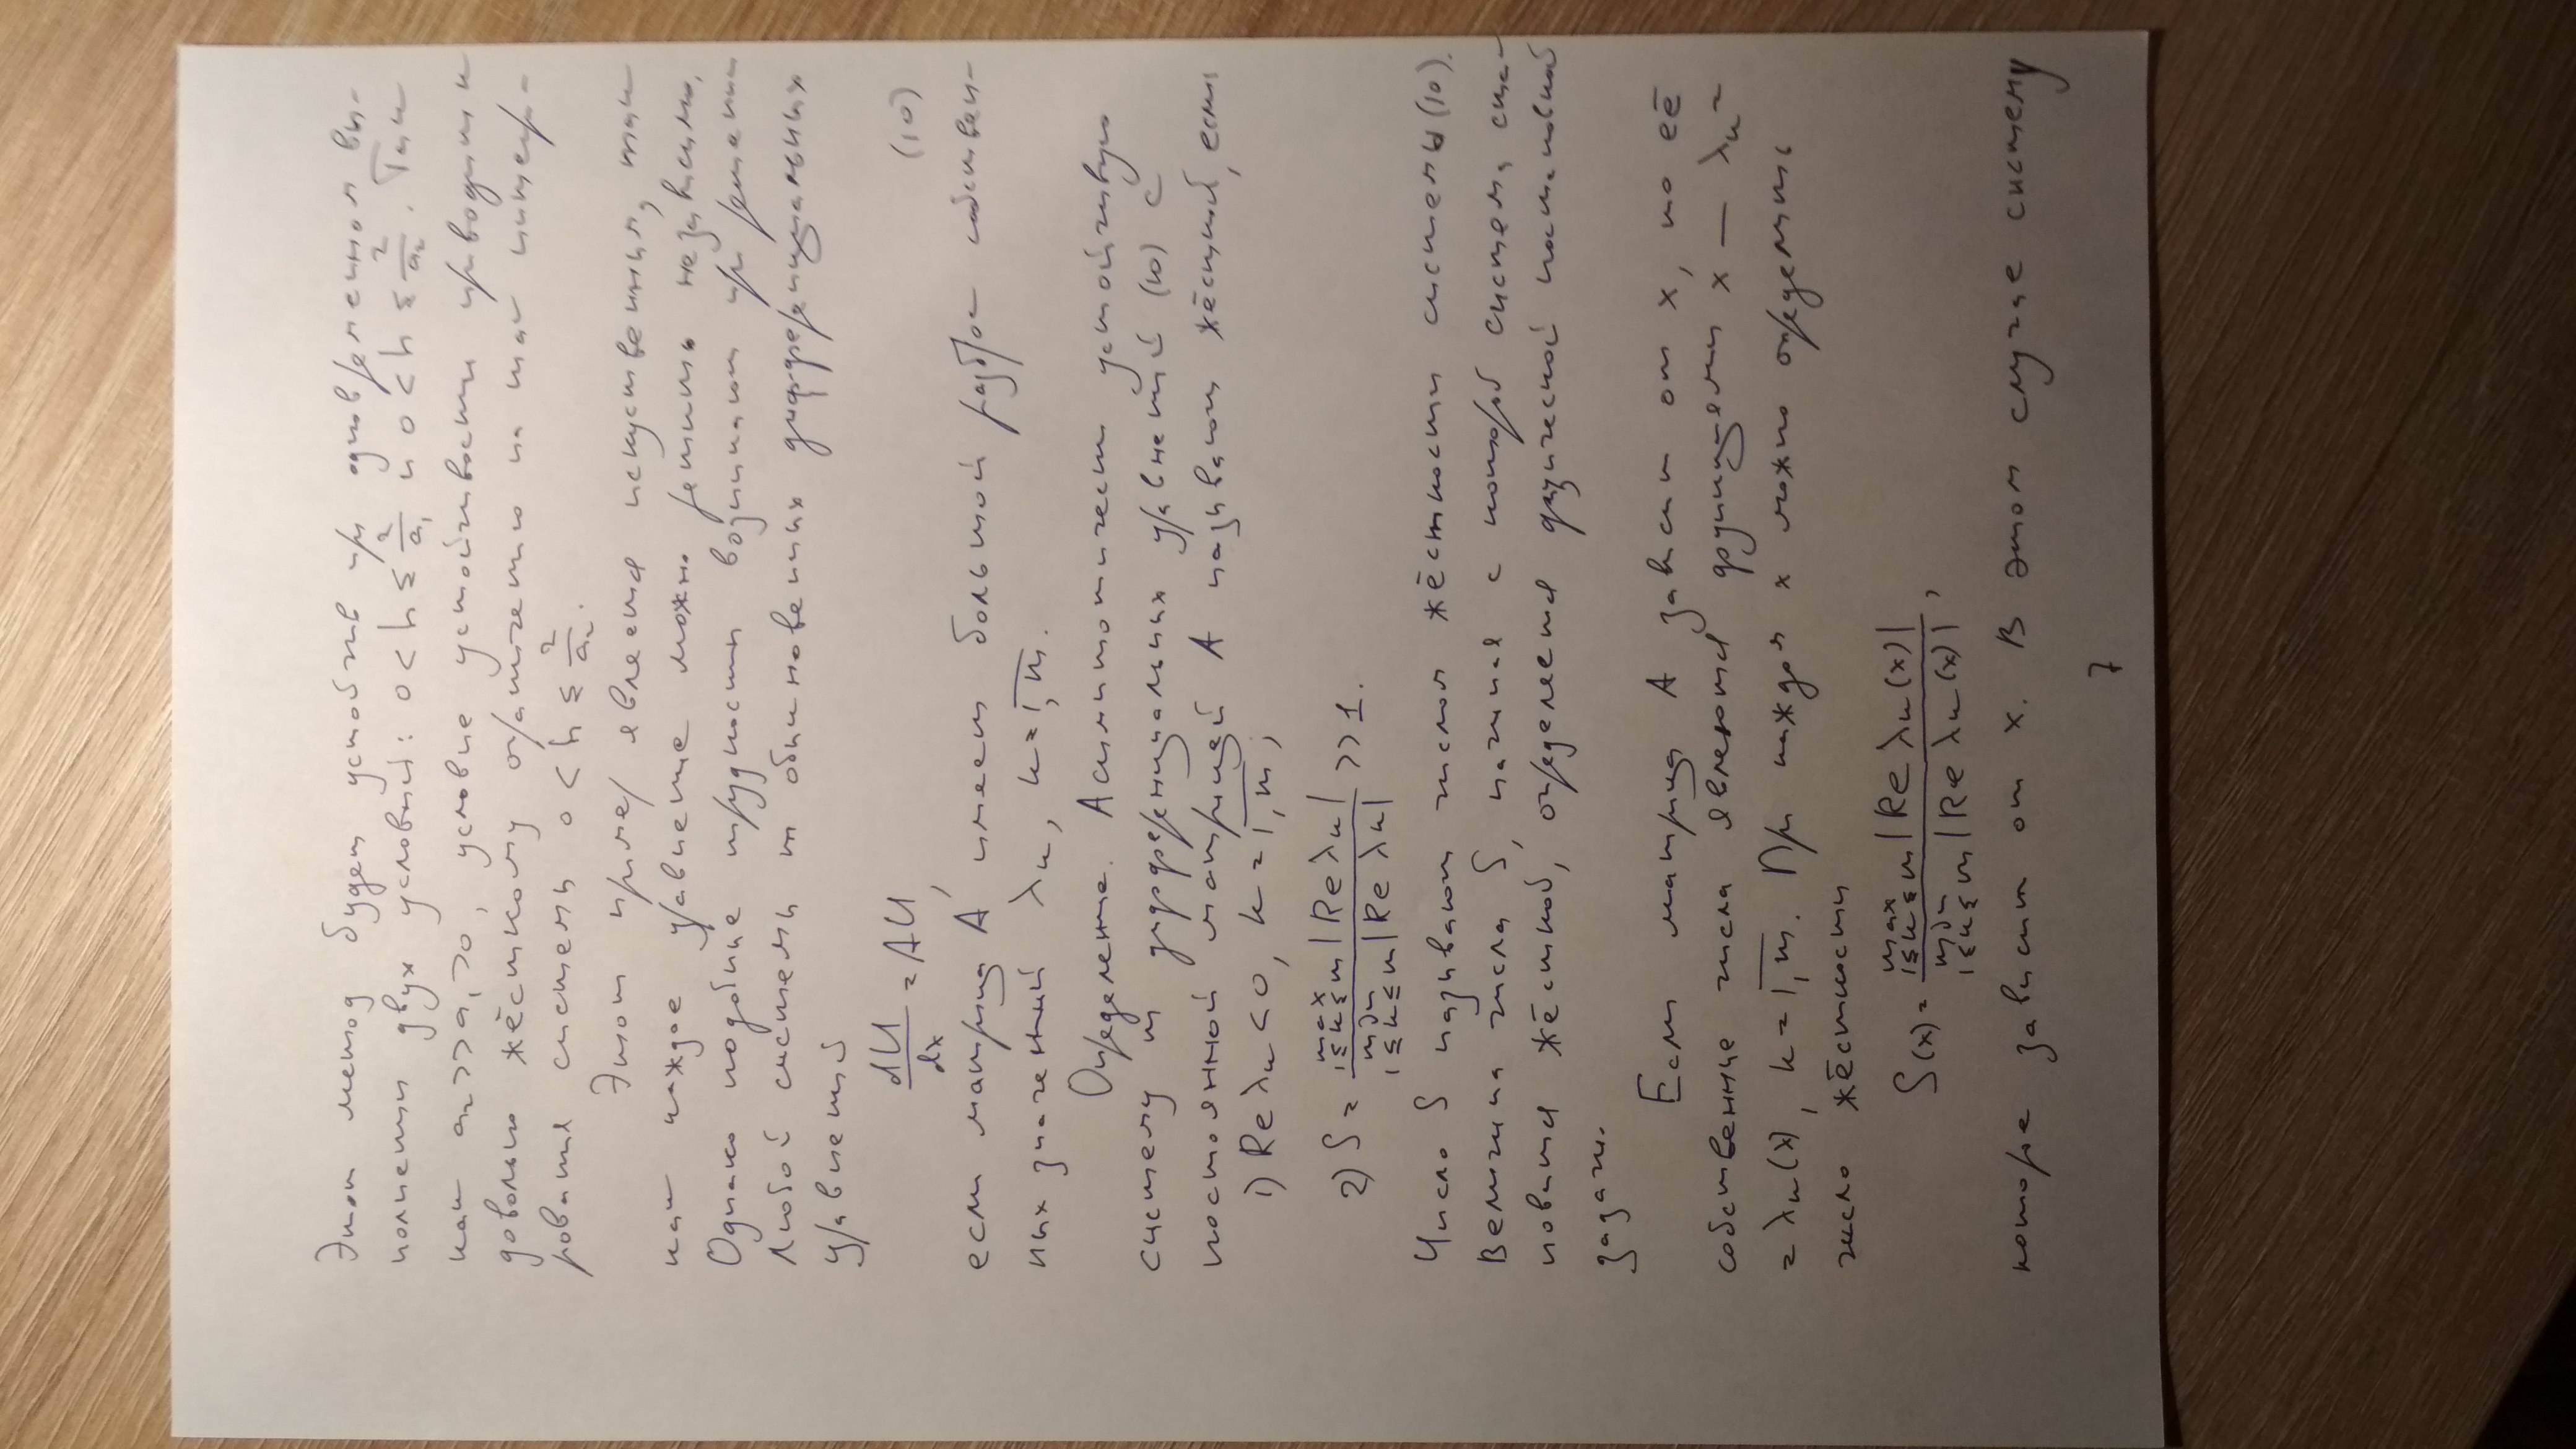 Этот метод будет устойчив при одновременном вы-
полнении двух условий: 0 < h ≤ 2/a₁ и 0 < h ≤ 2/a₂. Так
как a₂ >> a₁ > 0, условие устойчивости приводит к
довольно жёсткому ограничению на шаг интегри-
рования системы 0 < h ≤ 2/a₂.
Этот пример является искуственным, так
как каждое уравнение можно решить независимо.
Однако подобные трудности возникают при решении
любой системы m обыкновенных дифференциальных
уравнений
dU/dx = AU, (10)
если матрица A имеет большой разброс собствен-
ных значений λₖ, k = 1,m.
Определение. Асимптотически устойчивую
систему m дифференциальных уравнений (10) с
постоянной матрицей A называют жёсткой, если
1) Re λₖ < 0, k = 1,m;
2) S = max 1≤k≤m |Re λₖ| / min 1≤k≤m |Re λₖ| >> 1.
Число S называют числом жёсткости системы (10).
Величина числа S, начиная с которой система ста-
новится жёсткой, определяется физической постановкой
задачи.
Если матрица A зависит от x, то её
собственные числа являются функциями x — λₖ =
= λₖ(x), k = 1,m. При каждом x можно определить
число жёсткости
S(x) = max 1≤k≤m |Re λₖ(x)| / min 1≤k≤m |Re λₖ(x)|,
которое зависит от x. В этом случае систему
7